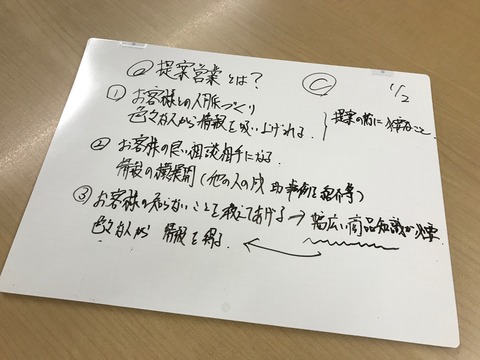 ◎ 提案営業とは？
Ⓒ
1/2
① お客様との人脈づくり
色々な人から情報を吸い上げれる。
提案の前に必要なこと。
② お客様の良い相談相手になる
情報の横展開(他の人の成功事例を紹介等)
③ お客様の知らないことを教えてあげる → 幅広い商品知識が必要
色々な人から 情報を得る。